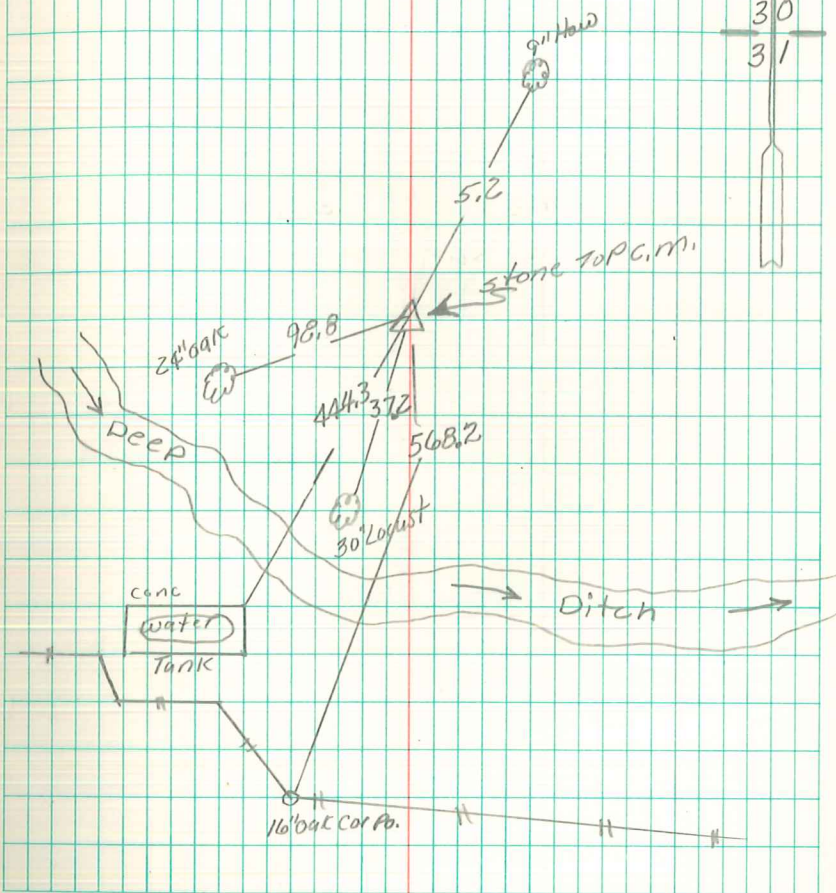 30
31
9" Haw
5.2
stone Top c.m.
24" oak
98.8
444.3
372
568.2
Deep
30" Locust
conc
water
Tank
Ditch
16" oak Cor Po.